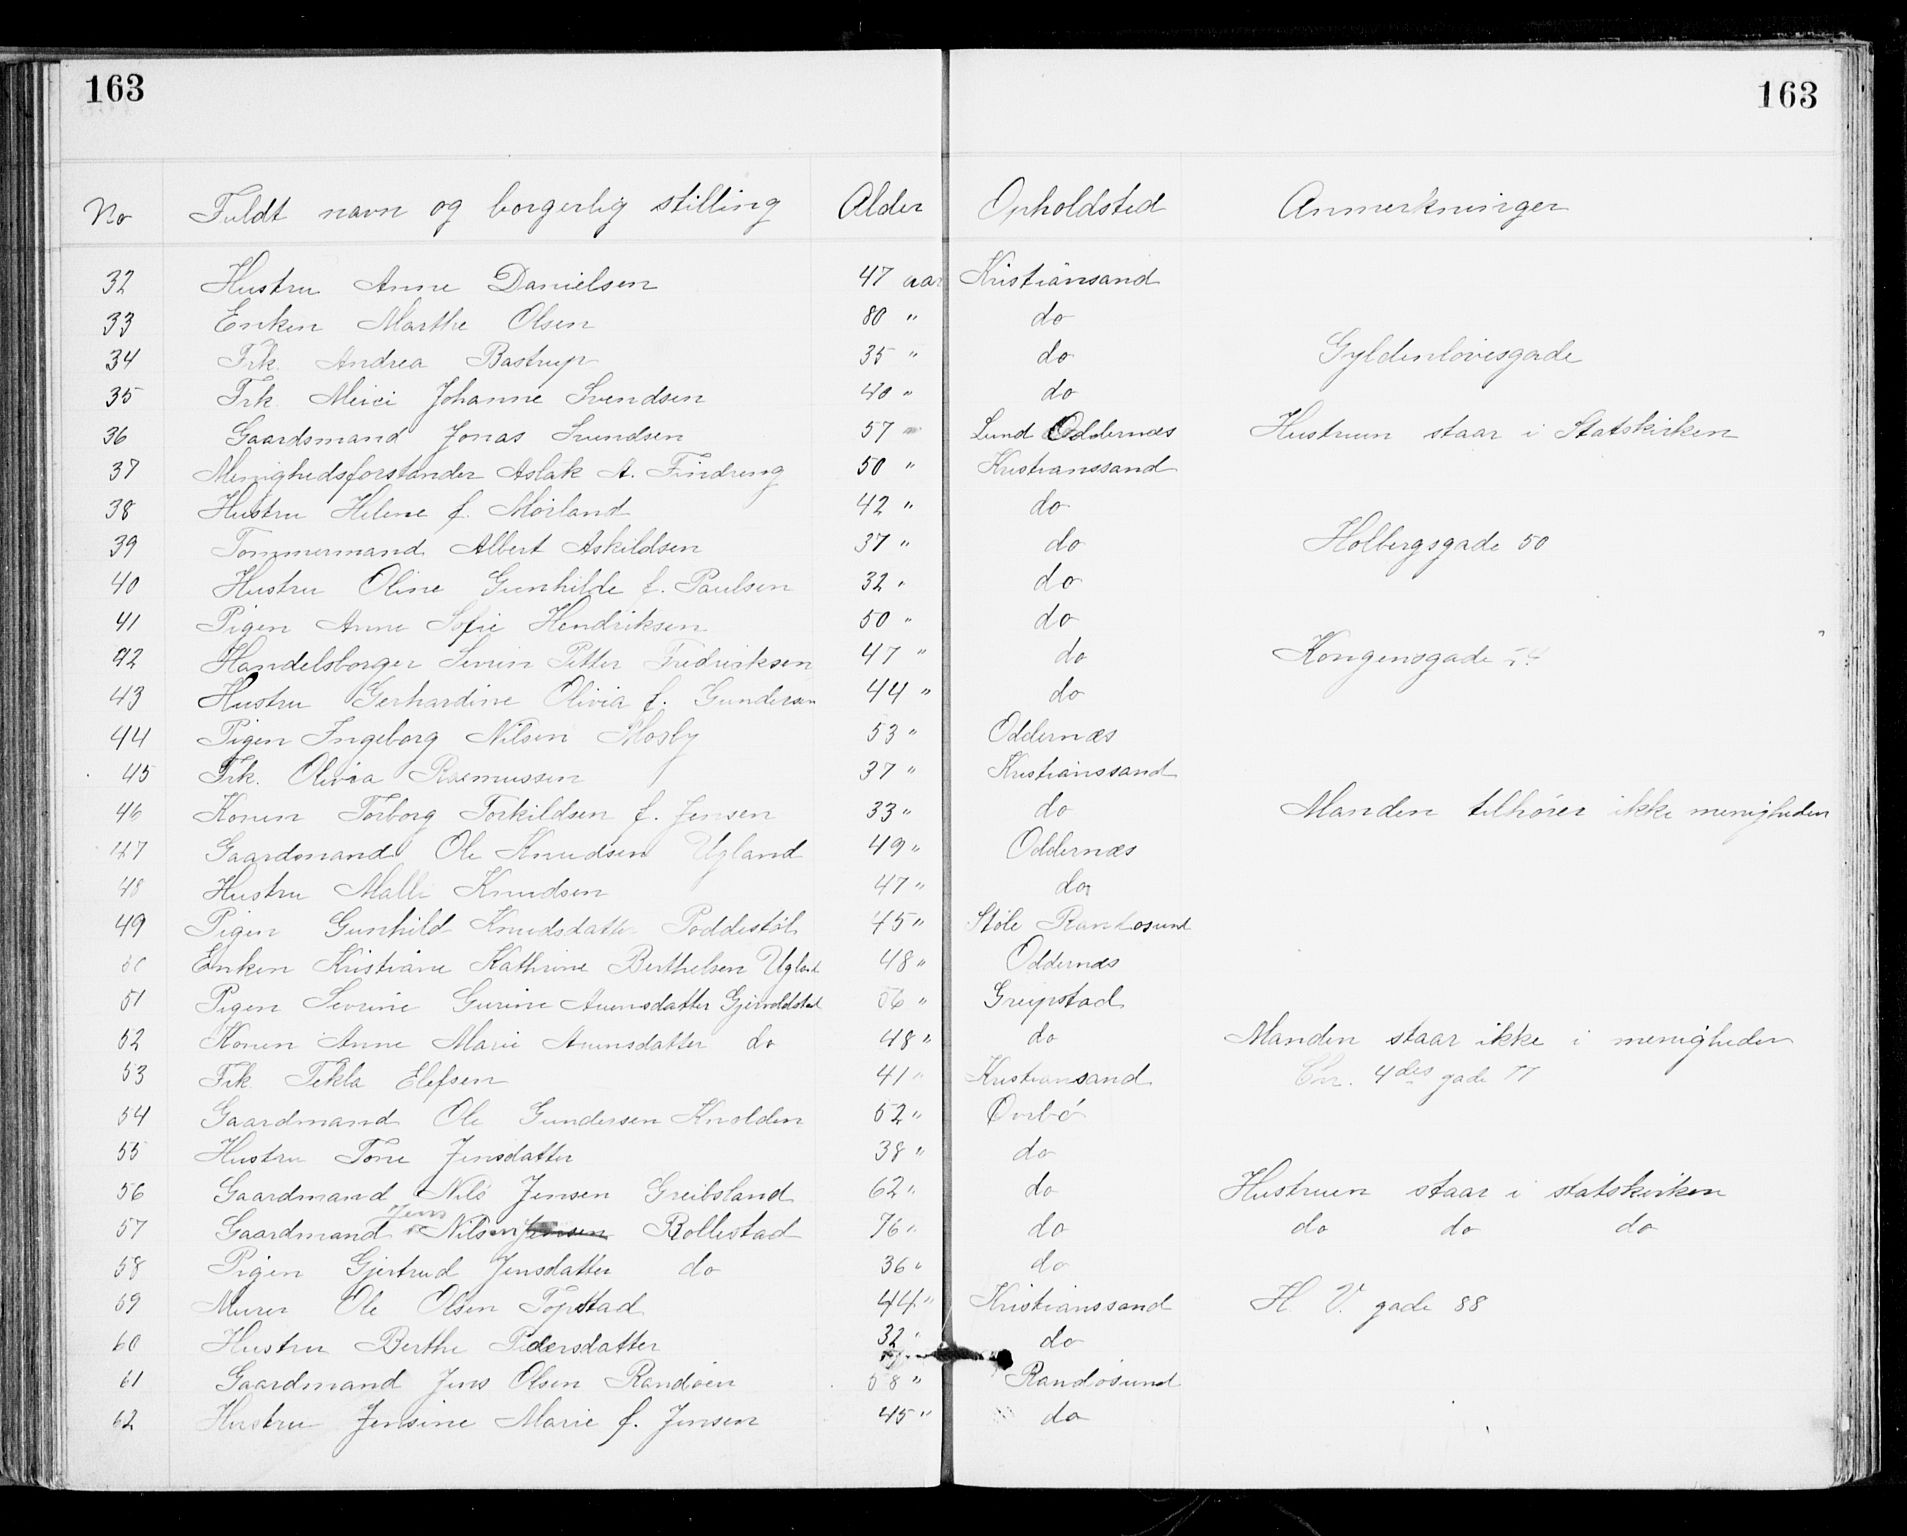 163 163
No Fuldt navn og borgerlig stilling Alder Opholdsted Anmerkninger
32 Hustru Anne Danielsen 47 aar Kristiansand
33 Enken Marthe Olsen 80 " do
34 Frk. Andrea Bastrup 35 " do Gyldenløvesgade
35 Frk. Meier Johanne Svendsen 40 " do
36 Gaardsmand Jonas Svendsen 57 " Lund Oddernæs Hustruen staar i Statskirken
37 Menighedsforstander Aslak A. Findreng 50 " Kristianssand
38 Hustru Helene f. Mörland 42 " do
39 Tømmermand Albert Askildsen 37 " do Holbergsgade 50
40 Hustru Oline Gunhilde f. Paulsen 32 " do
41 Pigen Anne Sofie Hendriksen 50 " do
42 Handelsborger Severin Petter Fredriksen 47 " do Kongensgade
43 Hustru Gerhardine Olivia f. Gundersen 44 " do
44 Pigen Ingeborg Nilsen Mosby 53 " Oddernæs
45 Frk. Olivia Rasmussen 37 " Kristianssand
46 Konen Torborg Torkildsen f. Jensen 33 " do Manden tilhører ikke menigheden
47 Gaardmand Ole Knudsen Ugland 49 " Oddernæs
48 Hustru Malli Knudsen 47 " do
49 Pigen Gunhild Knudsdatter Poddestöl 45 " Støle Randøsund
50 Enken Kristiane Kathrine Berthelsen Ugland 48 " Oddernæs
51 Pigen Sevrine Gurine Aanensdatter Gjervoldstad 56 " Greipstad
52 Konen Anne Marie Aanensdatter do 48 " do Manden staar ikke i menigheden
53 Frk Tekla Elefsen 41 " Kristiansand Chr. 4des gade 77
54 Gaardmand Ole Gundersen Knolden 52 " Øvrbö
55 Hustru Tone Jensdatter 38 " do
56 Gaardmand Nils Jensen Greibsland 62 " do Hustruen staar i statskirken
57 Gaardmand Jens Nilsen Jensen Rollestad 76 " do do do do
58 Pigen Gjertrud Jensdatter do 36 " do
59 Murer Ole Olsen Topstad 44 " Kristianssand H. V. gade 88
60 Hustru Berthe Pedersdatter 32 " do
61 Gaardmand Jens Olsen Randöen 58 " Randøsund
62 Hustru Jensine Marie f. Jensen 45 " do